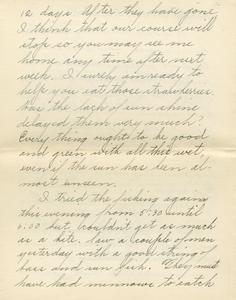 12 days. After they have gone
I think that our course will
stop so you may see me
home any time after next
week. I surely am ready to
help you eat those strawberries.
Has the lack of sun shine
delayed them very much?
Every thing ought to be good
and green with all this wet,
even if the sun has been al-
most unseen.
I tried the fishing again
this evening from 5:30 until
6:00 but couldn't get as much
as a bite. Saw a couple of men
yesterday with a good string of
bass and sun fish. They must
have had minnows to catch